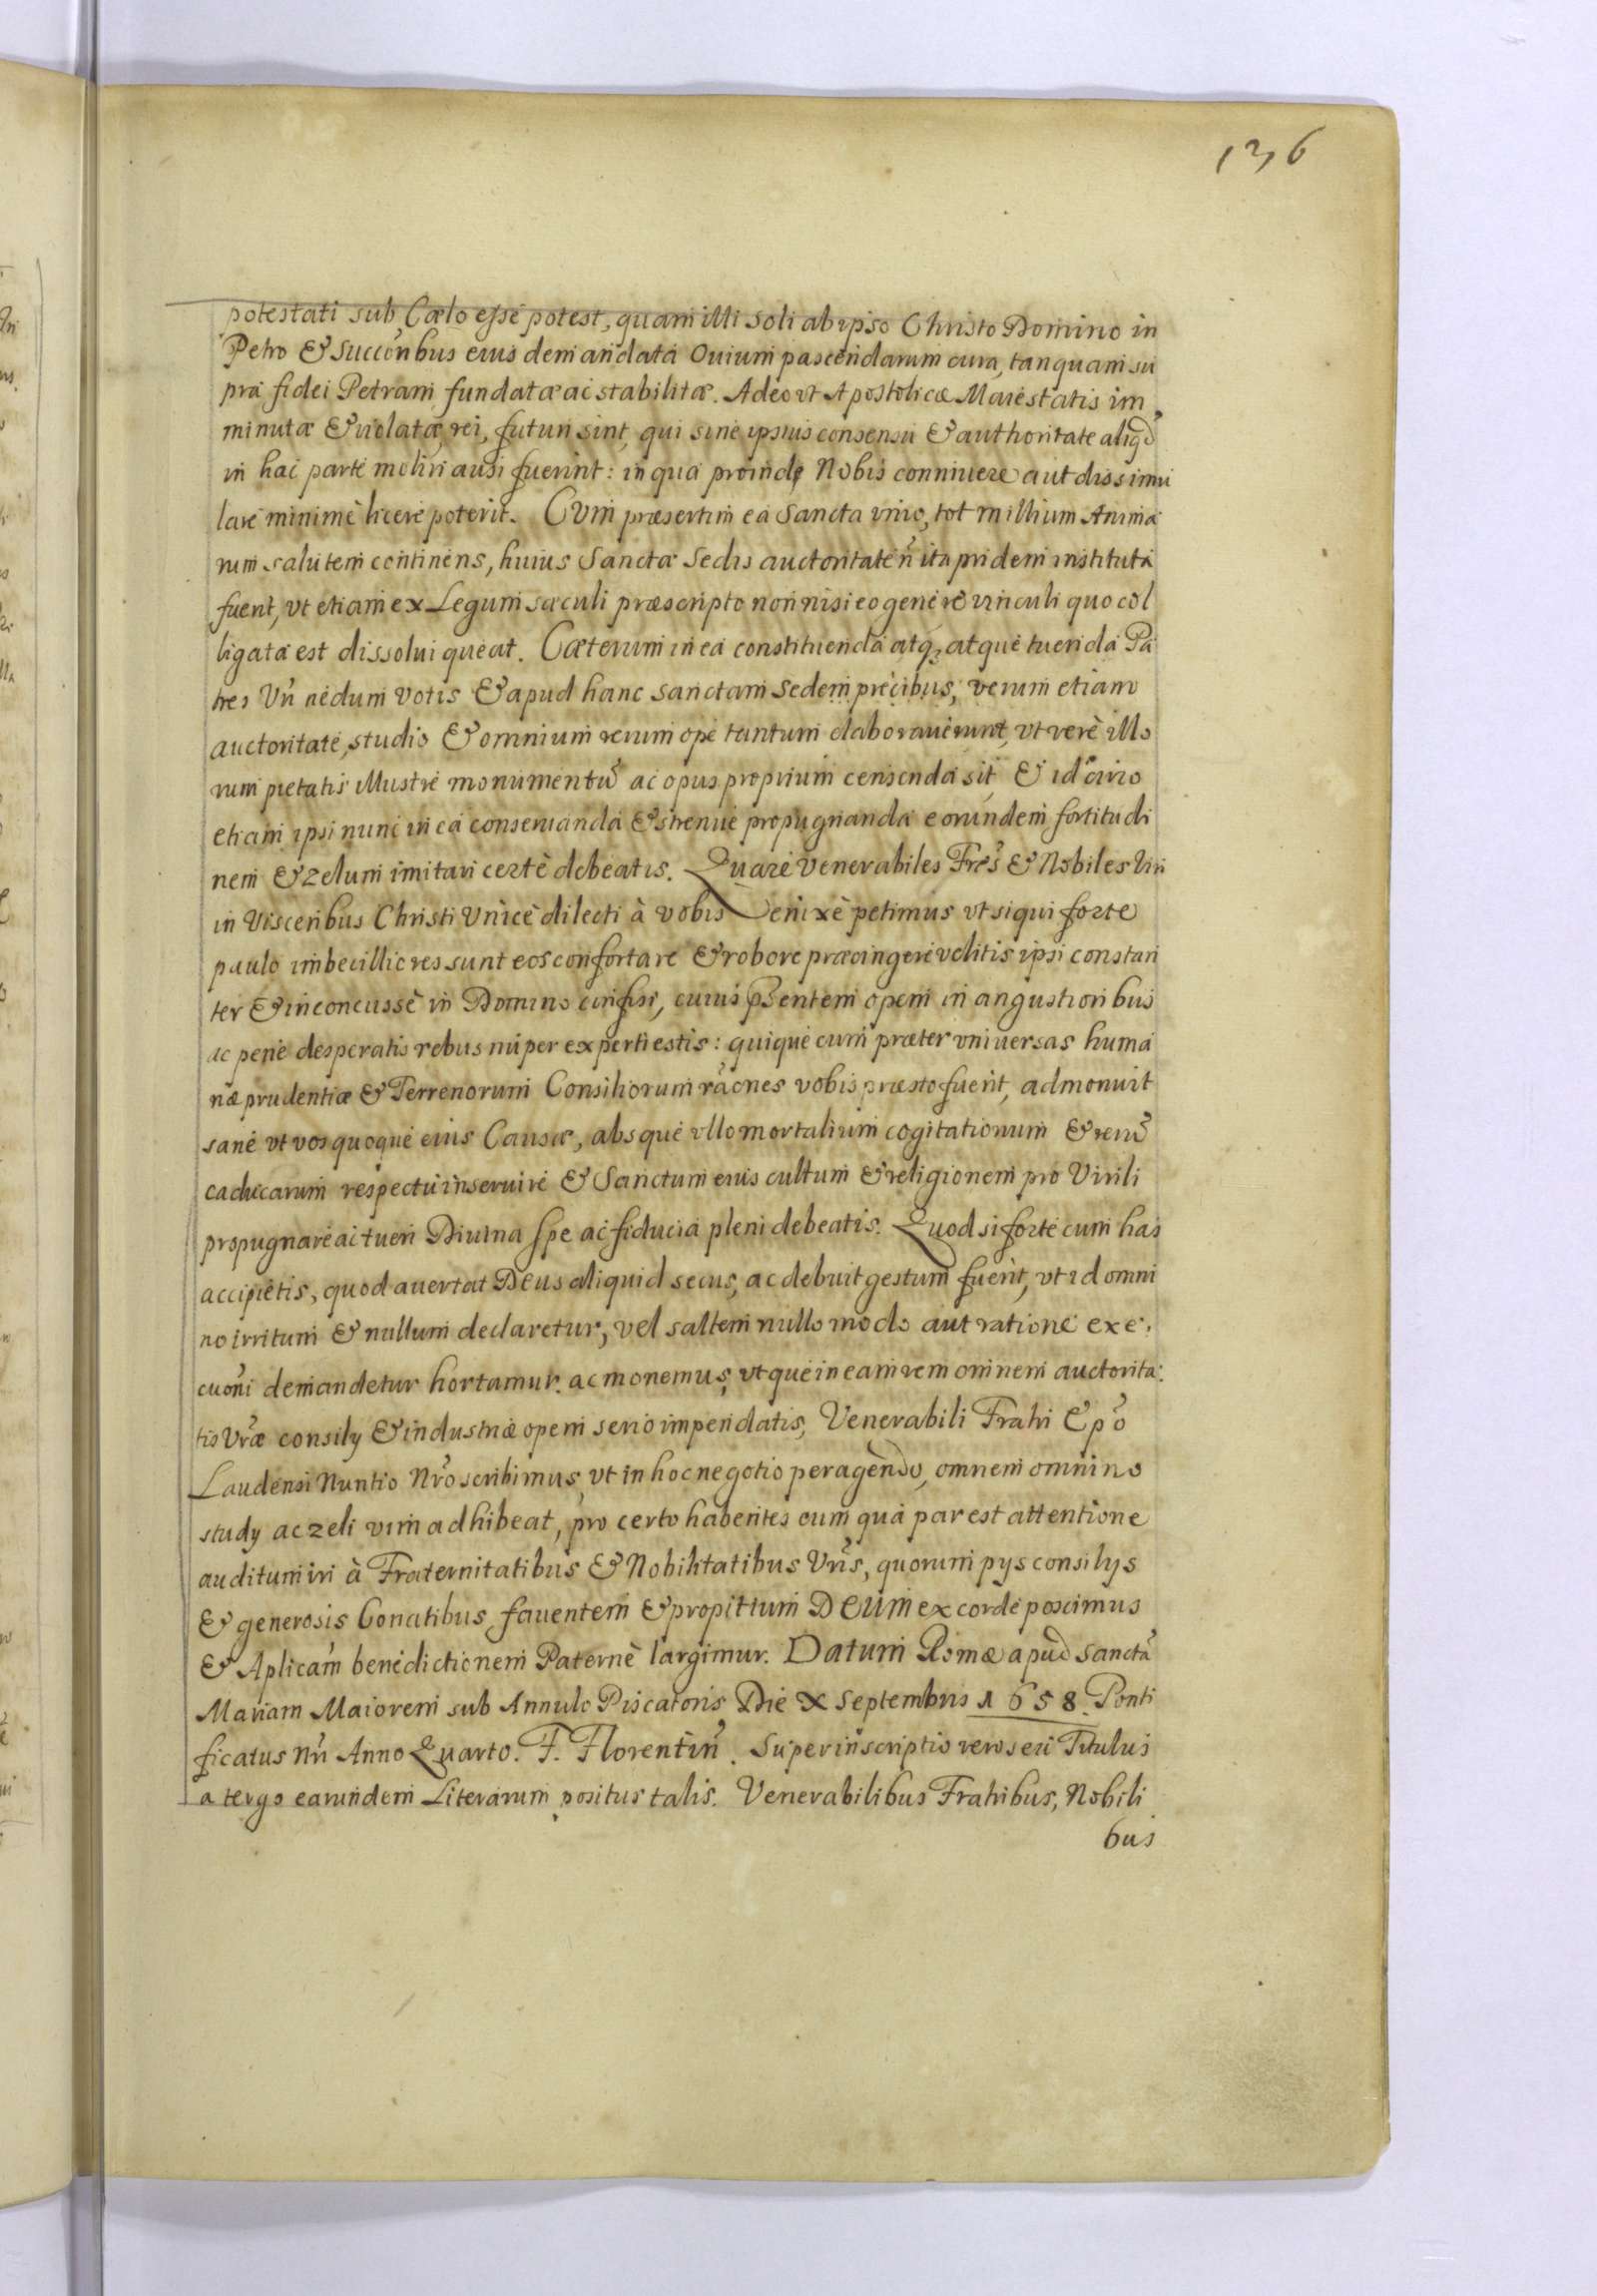 136
potestati sub Cælo esse potest, quam illi soli ab ipso Christo Domino in
Petro & Succoribus eius demandata Ouium pascendarum cura, tanquam su
pra fidei Petram fundatæ ac stabilitæ. Adeo vt Apostolicæ Maiestatis im
minutæ & violatæ rei, futuri sint, qui sine ipsius consensu & authoritate aliqd
in hac parte moliri ausi fuerint: in qua proinde Nobis conniuere aut dissimu
lare minimè licere poterit. CVm præsertim ea Sancta vnio, tot millium Anima
rum salutem continens, huius Sanctæ Sedis auctoritate ñ ita pridem instituta
fuerit, vt etiam ex Legum sæculi præscripto non nisi eo genere vinculi quo col
ligata est dissolui queat. Cæterum in ea constituenda atq; atque tuenda Pa
tres Vri nedum votis & apud hanc sanctam Sedem precibus, verum etiam
auctoritate, studio & omnium rerum ope tantum elaborauerunt, vt verè illo
rum pietatis illustre monumentũ ac opus proprium censenda sit, & idcirco
etiam ipsi nunc in ea conseruanda & strenuè propugnanda eorundem fortitudi
nem & zelum imitari certè debeatis. Quare Venerabiles Fres & Nobiles Viri
in Visceribus Christi Vnicè dilecti à vobis enixè petimus vt siqui forte
paulo imbecilliores sunt eos confortare & robore præcingere velitis ipsi constan
ter & inconcussè in Domino confisi, cuius pñsentem opem in angustioribus
ac penè desperatis rebus nuper experti estis: quique cum præter vniuersas huma
næ prudentiæ & Terrenorum Consiliorum rãones vobis præsto fuerit, admonuit
sanè vt vos quoque eius Causæ, absque vllo mortalium cogitationum & rerũ
caducarum respectu inseruire & Sanctum eius cultum & religionem pro Virili
propugnare ac tueri Diuina spe ac fiducia pleni debeatis. Quod si forte cum has
accipietis, quod auertat Deus aliquid secus, ac debuit gestum fuerit, vt id omni
no irritum & nullum declaretur, vel saltem nullo modo aut ratione exe:
cuoñi demandetur hortamur ac monemus, vtque in eam rem omnem auctorita:
tis Vræ consily & industriæ opem serio impendatis, Venerabili Fratri Epõ
Laudensi Nuntio Nrõ scribimus, vt in hoc negotio peragendo, omnem omnino
study ac zeli vim adhibeat, pro certo habentes eum qua par est attentione
auditum iri à Fraternitatibus & Nobilitatibus Vris, quorum pys consilys
& generosis Conatibus fauentem & propitium DEUM ex corde poscimus
& Aplicam benedictionem Paternè largimur. Datum Romæ apud Sanctã
Mariam Maiorem sub Annulo Piscatoris Die X Septembris 1658. Ponti
ficatus Nri Anno Quarto. F. Florentiñ. Superinscriptio vero seu Titulus
a tergo earundem Literarum positus talis. Venerabilibus Fratribus, Nobili
bus